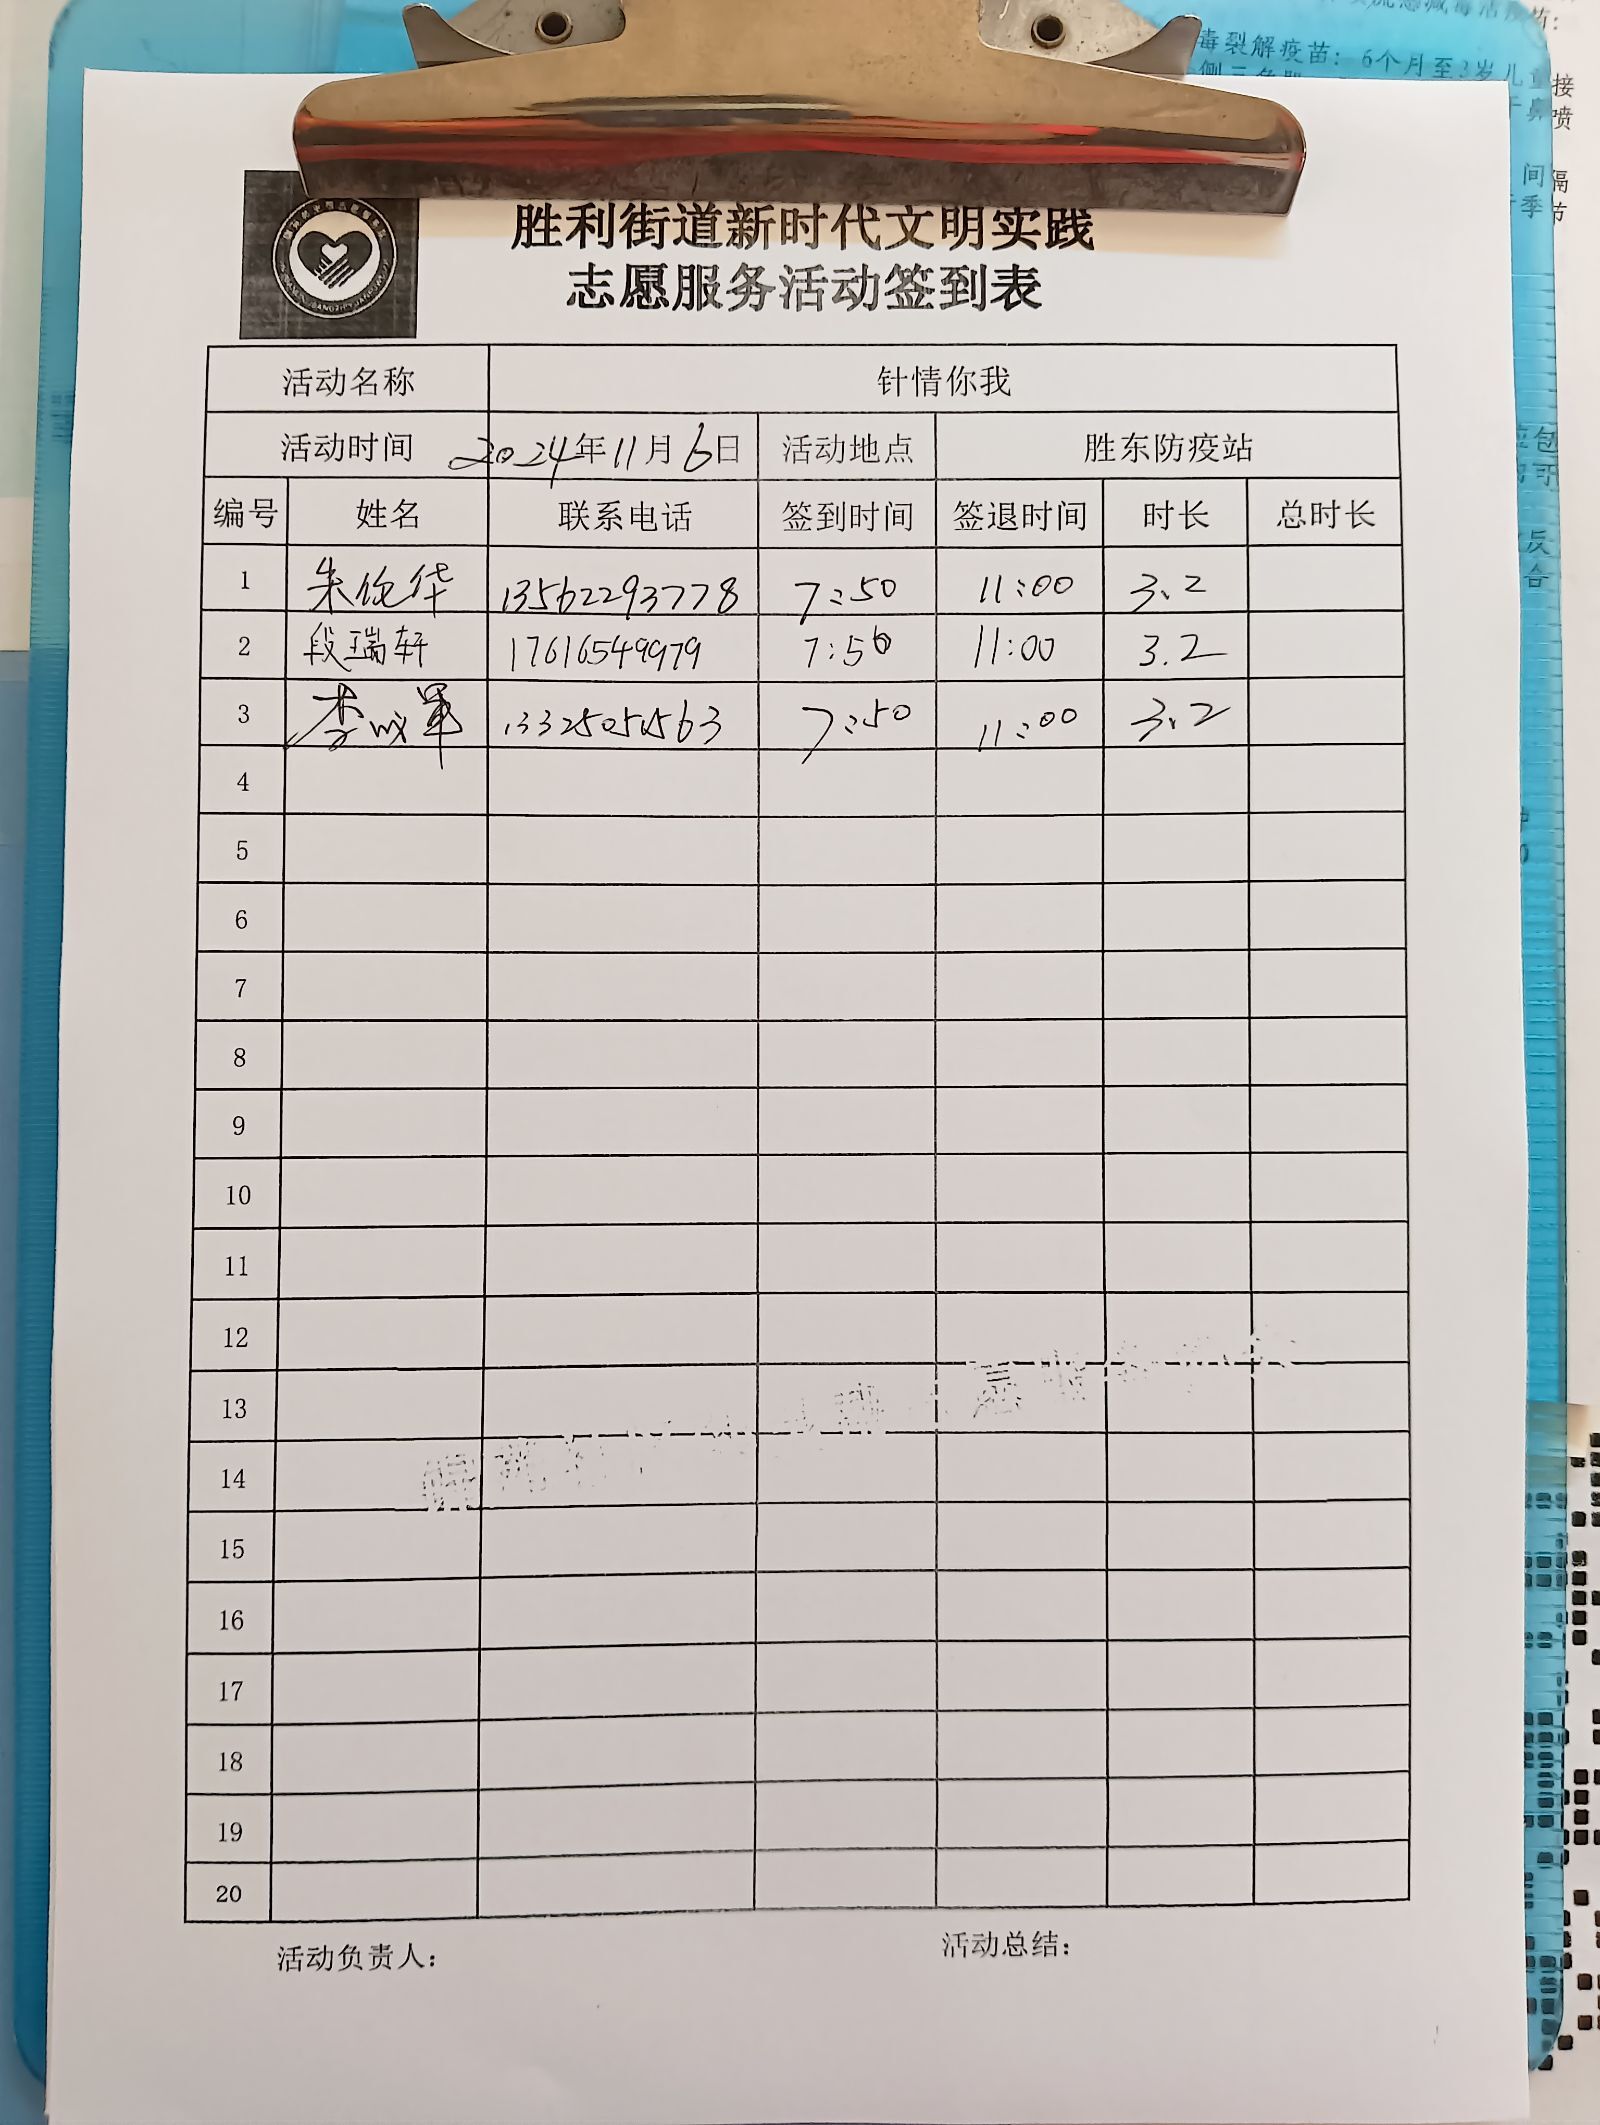 毒裂解疫苗：6个月至3岁儿童接
喷
间隔
季节
胜利街道新时代文明实践
志愿服务活动签到表
活动名称 针情你我
活动时间 2024年11月6日 活动地点 胜东防疫站
编号 姓名 联系电话 签到时间 签退时间 时长 总时长
1 朱俊华 13562293778 7:50 11:00 3.2
2 段瑞轩 17616549979 7:50 11:00 3.2
3 李成军 13325051563 7:50 11:00 3.2
4
5
6
7
8
9
10
11
12
13
14
15
16
17
18
19
20
活动负责人： 活动总结：